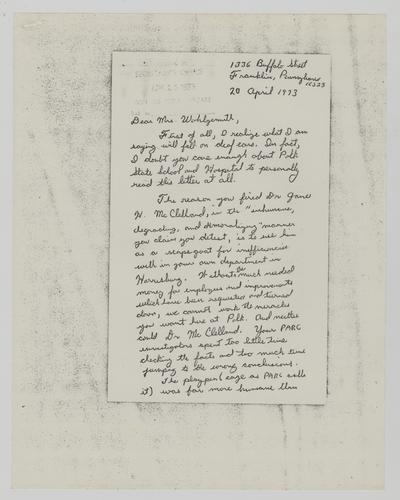 1336 Buffalo Street
Franklin, Pennsylvania
16323
20 April 1973
Dear Mrs. Wohlgemuth,
First of all, I realize what I am
saying will fall on deaf ears. In fact,
I doubt you care enough about Polk
State School and Hospital to personally
read this letter at all.
The reason you fired Dr. James
H. McClelland, in the "inhumane,
degrading, and demoralizing" manner
you claim you detest, is to use him
as a scapegoat for inefficiencies
with in your own department in
Harrisburg. Without the much needed
money for employees and improvements
which have been requested and turned
down, we cannot work the miracles
you want here at Polk. And neither
could Dr. McClelland. Your PARC
investigators spent too little time
checking the facts and too much time
jumping to the wrong conclusions.
The playpen (cage as PARC calls
it) was far more humane than